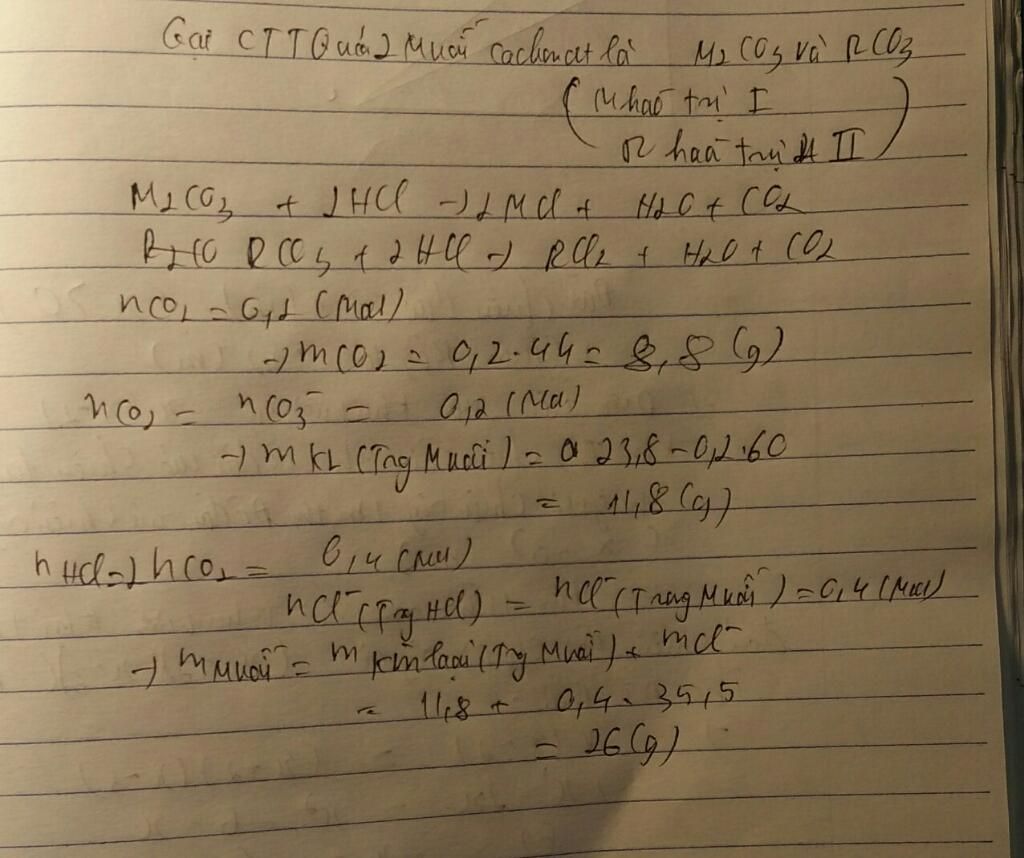 Gọi CTTQuá 2 Muối cacbonat là M2CO3 và RCO3
(M hoá trị I
R hoá trị II)
M2CO3 + 2HCl → 2MCl + H2O + CO2
RCO3 + 2HCl → RCl2 + H2O + CO2
nCO2 = 0,2 (Mol)
→ mCO2 = 0,2.44 = 8,8 (g)
nCO2 = nCO3⁻ = 0,2 (Mol)
→ m KL (Tng Muối) = 23,8 - 0,2.60
= 11,8 (g)
nHCl = 2nCO2 = 0,4 (Mol)
nCl⁻ (Tng HCl) = nCl⁻ (Trong Muối) = 0,4 (Mol)
→ m Muối = m Kim loại (Tng Muối) + mCl⁻
= 11,8 + 0,4.35,5
= 26 (g)